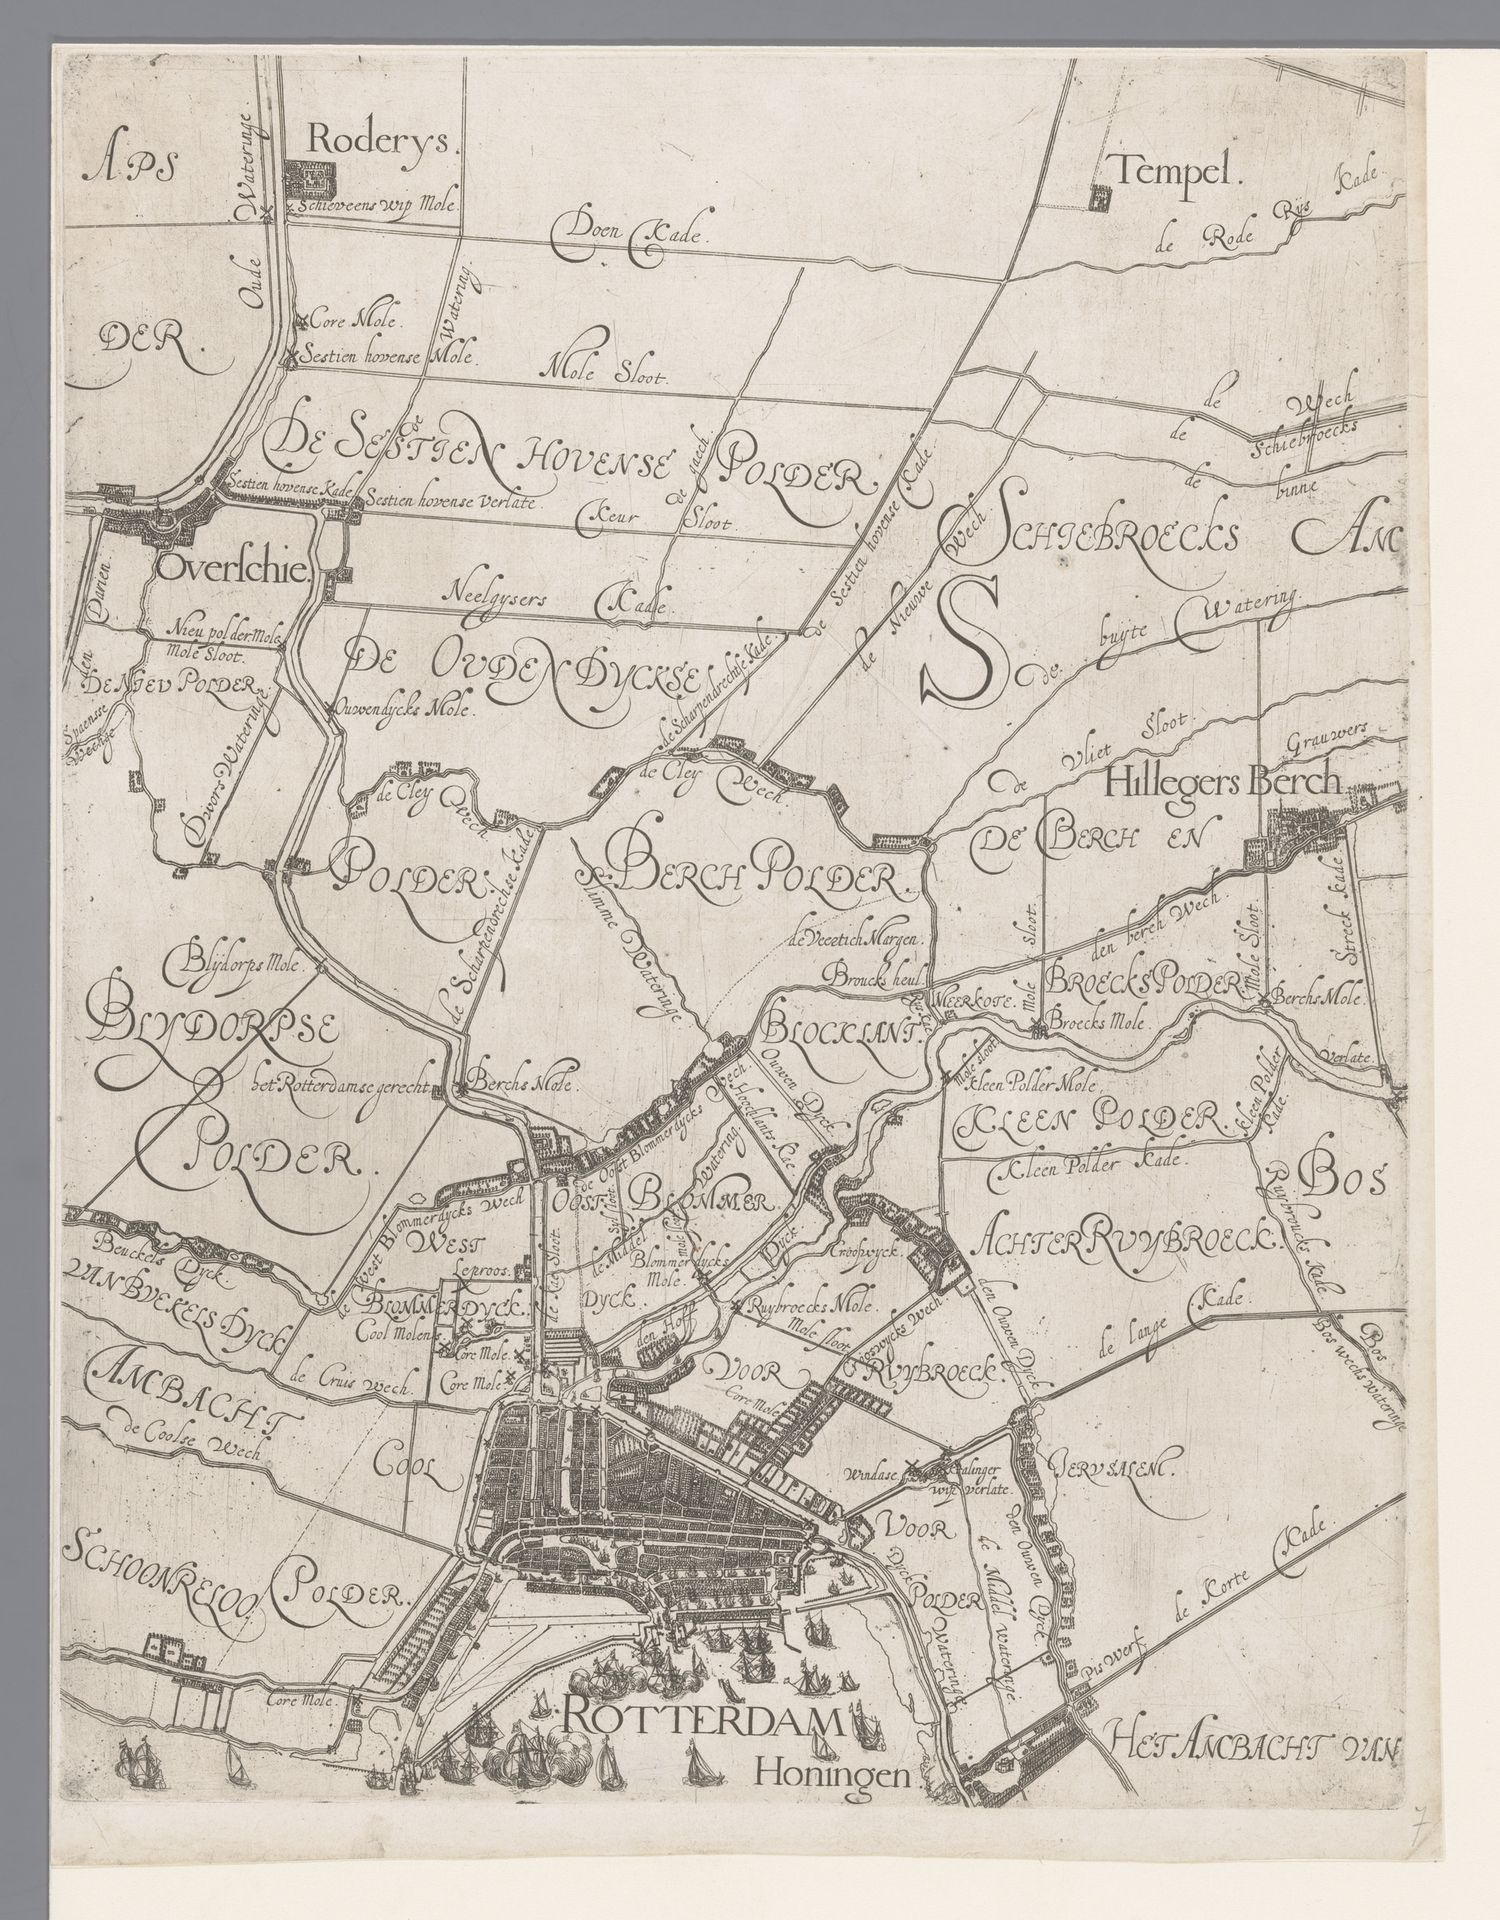 Roderys.
APS
Wateringe.
Schieveens Wip Mole.
Tempel.
de Rode Rijs Kade.
Doen Kade.
Oude
Watering.
DER.
Core Mole.
Sestien hovense Mole.
Mole Sloot.
de Wech
de Schiebroecks
de binne
DE SESTIEN HOVENSE POLDER.
de
de
Sestien hovense Kade
Sestien hovense Verlate
Keur Sloot.
de Sestien hovense Kade.
de Nieuwe Wech.
SCHIEBROECKS AM
S
Overschie.
Neelgysers Kade.
de buyte Watering.
Nieu polder Mole
Mole Sloot.
DE NIEV POLDER.
den
DE OUDENDYCKSE
de Scharpendrechtse Kade.
Ouwendycks Mole.
Spaensse
Dwors Wateringe
de Vliet Sloot.
Grauwers
Hillegers Berch.
de Cley Wech.
de Cley Wech.
DE BERCH EN
POLDER.
BERCH POLDER.
de Scharpendrechse Kade
Slimme Wateringe
de Veertich Margen.
den berch Wech.
Mole Sloot.
Mole Sloot.
Streck Kade.
Blydorps Mole.
Broucks heul
MEERKOTE.
BROECKS POLDER
Berchs Mole.
Broecks Mole.
BLYDORPSE
POLDER.
BLOCKLANT.
Mole sloot
Kleen Polder Mole.
Verlate.
het Rotterdamse gerecht
Berchs Mole.
Ouwen Dyck
KLEEN POLDER.
Kleen Polder Kade.
Kleen Polder Kade.
de Oost Blommerdycks Wech.
Hoocklants Kae.
Watering.
BOS
Ruybroucks Kade.
de West Blommerdycks Wech
OOST BLOMMER
DYCK.
Beuckels Dyck.
WEST
Leproos.
BLOMMERDYCK.
de Kae Sloot.
de Middel
mole sloot
Blommerdycks
Mole.
Dyck
Croofwyck.
ACHTER RUYBROECK.
VAN BUEKELS DYCK
AMBACHT
Cool Molens
Core Mole.
Core Mole.
den Hoff
Ruybroecks Mole.
Mole sloot
den Ouwen Dyck
de lange Kade.
Bos
Bos wechs Wateringe
de Cruis Wech.
VOOR RUYBROECK.
Core Mole
de Coolse Wech
COOL
Windase
Kralinger
wip verlate.
JERUSALEM.
VOOR
POLDER
Dyck Wateringe
de Middel wateringe.
den Ouwen Dyck.
SCHOONRELOO POLDER.
de Korte Kade.
Pis Werf.
Core Mole.
ROTTERDAM
Honingen
HET AMBACHT VAN
7